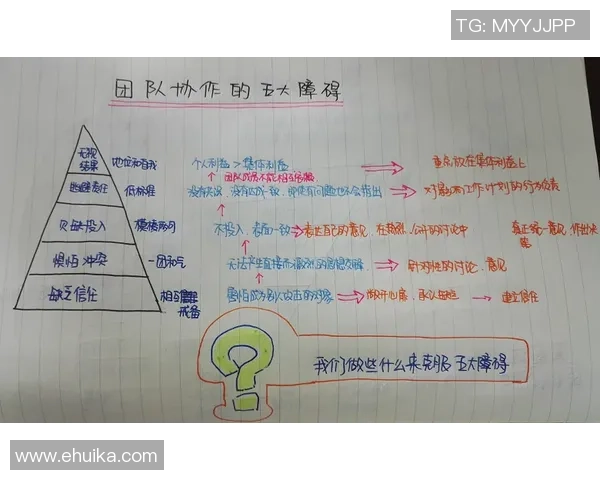 TG: MYYJJPP
团队协作的五大障碍
无视
结果
地位和自我
个人利益 > 集体利益
重点放在集体利益上
团队成员不能相互
逃避责任
低标准
没有共识、没有达成一致,即使有问题也不会指出
对影响工作计划的行为负责
欠缺投入
模棱两可
不投入,表面一致
表达自己的意见,在热烈、公开的讨论中
真正统一意见,作出决策
惧怕冲突
一团和气
无法产生直接而激烈的思想交锋
针对性的讨论、意见
缺乏信任
相互
戒备
害怕成为别人攻击的对象
敞开心扉、承认
建立信任
?
我们做些什么来克服五大障碍
www.ehuika.com